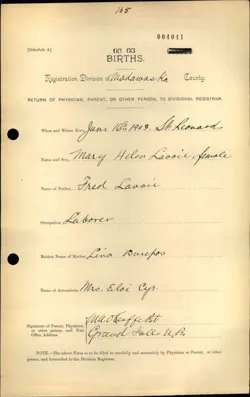 165
004011
[Schedule A.]
BIRTHS.
Registration Division of Madawaska County.
RETURN OF PHYSICIAN, PARENT, OR OTHER PERSON, TO DIVISIONAL REGISTRAR.
When and Where Born, June 16th 1903. St. Leonard
Name and Sex, Mary Helen Lavoie, female
Name of Father, Fred Lavoie
Occupation, Laborer
Maiden Name of Mother, Lina Durepos
Name of Accoucheur, Mrs. Eloi Cyr.
Signature of Parent, Physician, or other Person, and Post Office Address.
Grand Falls N.B.
NOTE.—The above Form is to be filled in carefully, and accurately by Physician or Parent, or other person, and forwarded to the Division Registrar.